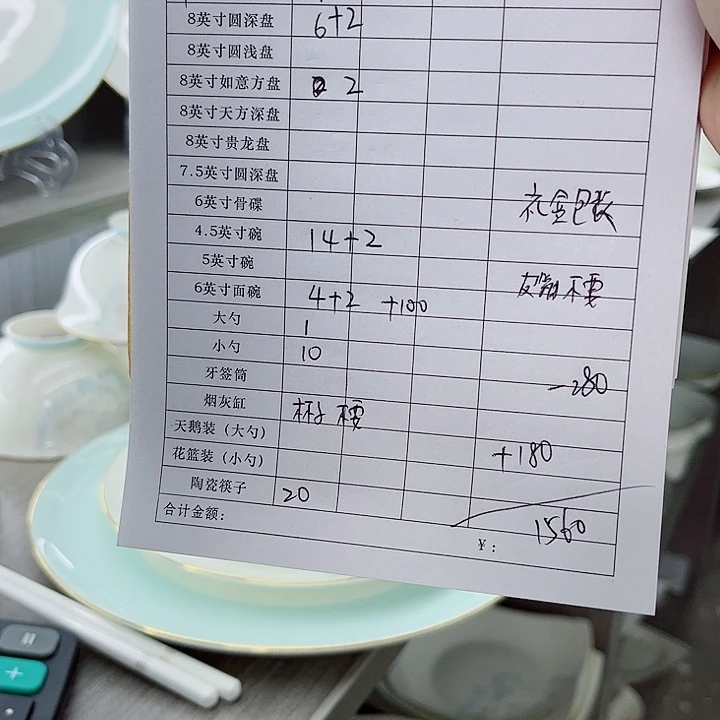 8英寸圆深盘 6+2
8英寸圆浅盘
8英寸如意方盘 2
8英寸天方深盘
8英寸贵龙盘
7.5英寸圆深盘
6英寸骨碟 礼盒包装
4.5英寸碗 14+2
5英寸碗
6英寸面碗 4+2 +100 不要
大勺 1
小勺 10
牙签筒 -280
烟灰缸 杯子 不要
天鹅装（大勺）
花篮装（小勺） +180
陶瓷筷子 20
合计金额： ¥： 1560
=
+